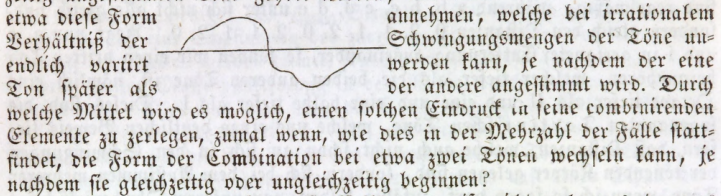 etwa dieſe Form annehmen, welche bei irrationalem
Verhältniß der Schwingungsmengen der Töne un-
endlich variirt werden kann, je nachdem der eine
Ton ſpäter als der andere angeſtimmt wird. Durch
welche Mittel wird es möglich, einen ſolchen Eindruck in ſeine combinirenden
Elemente zu zerlegen, zumal wenn, wie dies in der Mehrzahl der Fälle ſtatt-
findet, die Form der Combination bei etwa zwei Tönen wechſeln kann, je
nachdem ſie gleichzeitig oder ungleichzeitig beginnen?